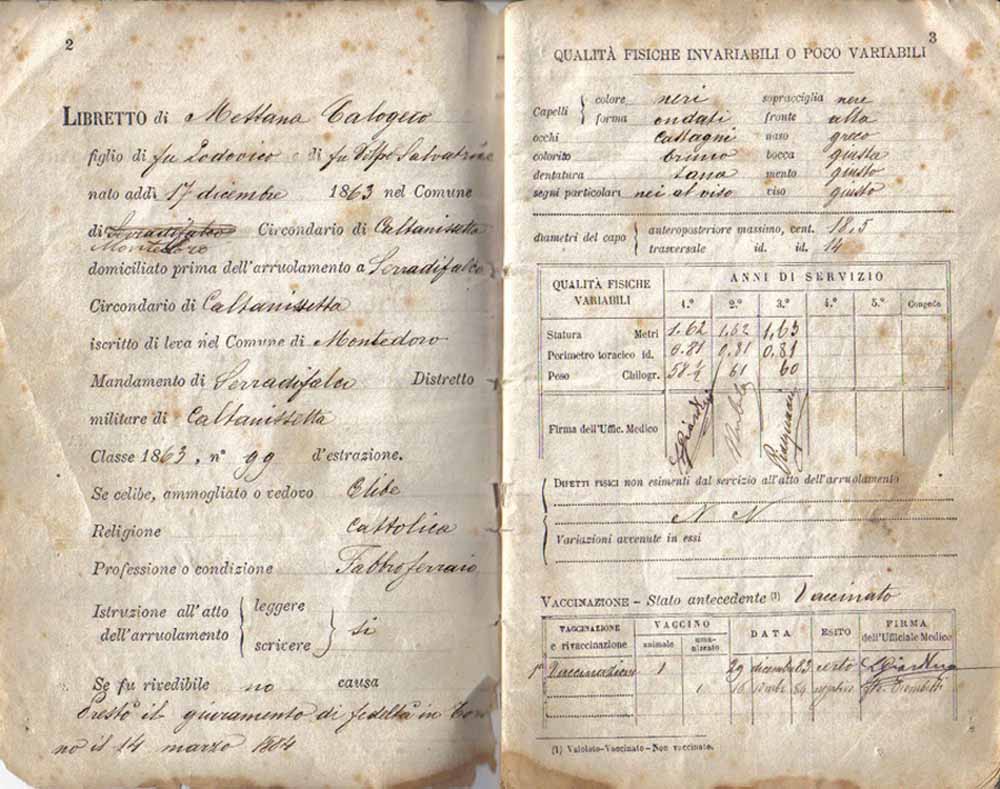 2
LIBRETTO di Mettana Calogero
figlio di fu Lodovico e di fu Volpe Salvatrice
nato addì 17 dicembre 1863 nel Comune
di Serradifalco Circondario di Caltanissetta
Montedoro
domiciliato prima dell'arruolamento a Serradifalco
Circondario di Caltanissetta
iscritto di leva nel Comune di Montedoro
Mandamento di Serradifalco Distretto
militare di Caltanissetta
Classe 1863, n° 99 d'estrazione.
Se celibe, ammogliato o vedovo Celibe
Religione Cattolica
Professione o condizione Fabbro ferraio
Istruzione all'atto dell'arruolamento { leggere
scrivere } si
Se fu rivedibile no causa
Prestò il giuramento di fedeltà in
no il 14 marzo 1884
3
QUALITÀ FISICHE INVARIABILI O POCO VARIABILI
Capelli { colore neri sopracciglia nere
forma ondati fronte alta
occhi castagni naso greco
colorito bruno bocca giusta
dentatura sana mento giusto
segni particolari nei al viso viso giusto
diametri del capo { anteroposteriore massimo, cent. 18,5
trasversale id. id. 14
QUALITÀ FISICHE VARIABILI ANNI DI SERVIZIO
1.° 2.° 3.° 4.° 5.° Congedo
Statura Metri 1.62 1,62 1,63
Perimetro toracico id. 0.81 0,81 0,81
Peso Chilogr. 58 ½ 61 60
Firma dell'Uffic. Medico
DIFETTI FISICI non esimenti dal servizio all'atto dell'arruolamento
N N
Variazioni avvenute in essi
VACCINAZIONE - Stato antecedente (1) Vaccinato
VACCINAZIONE e rivaccinazione VACCINO DATA ESITO FIRMA dell'Ufficiale Medico
animale umanizzato
1ª Vaccinazione 1 29 dicembre 83 certo
1 16 84
(1) Vaioloto - Vaccinato - Non vaccinato.